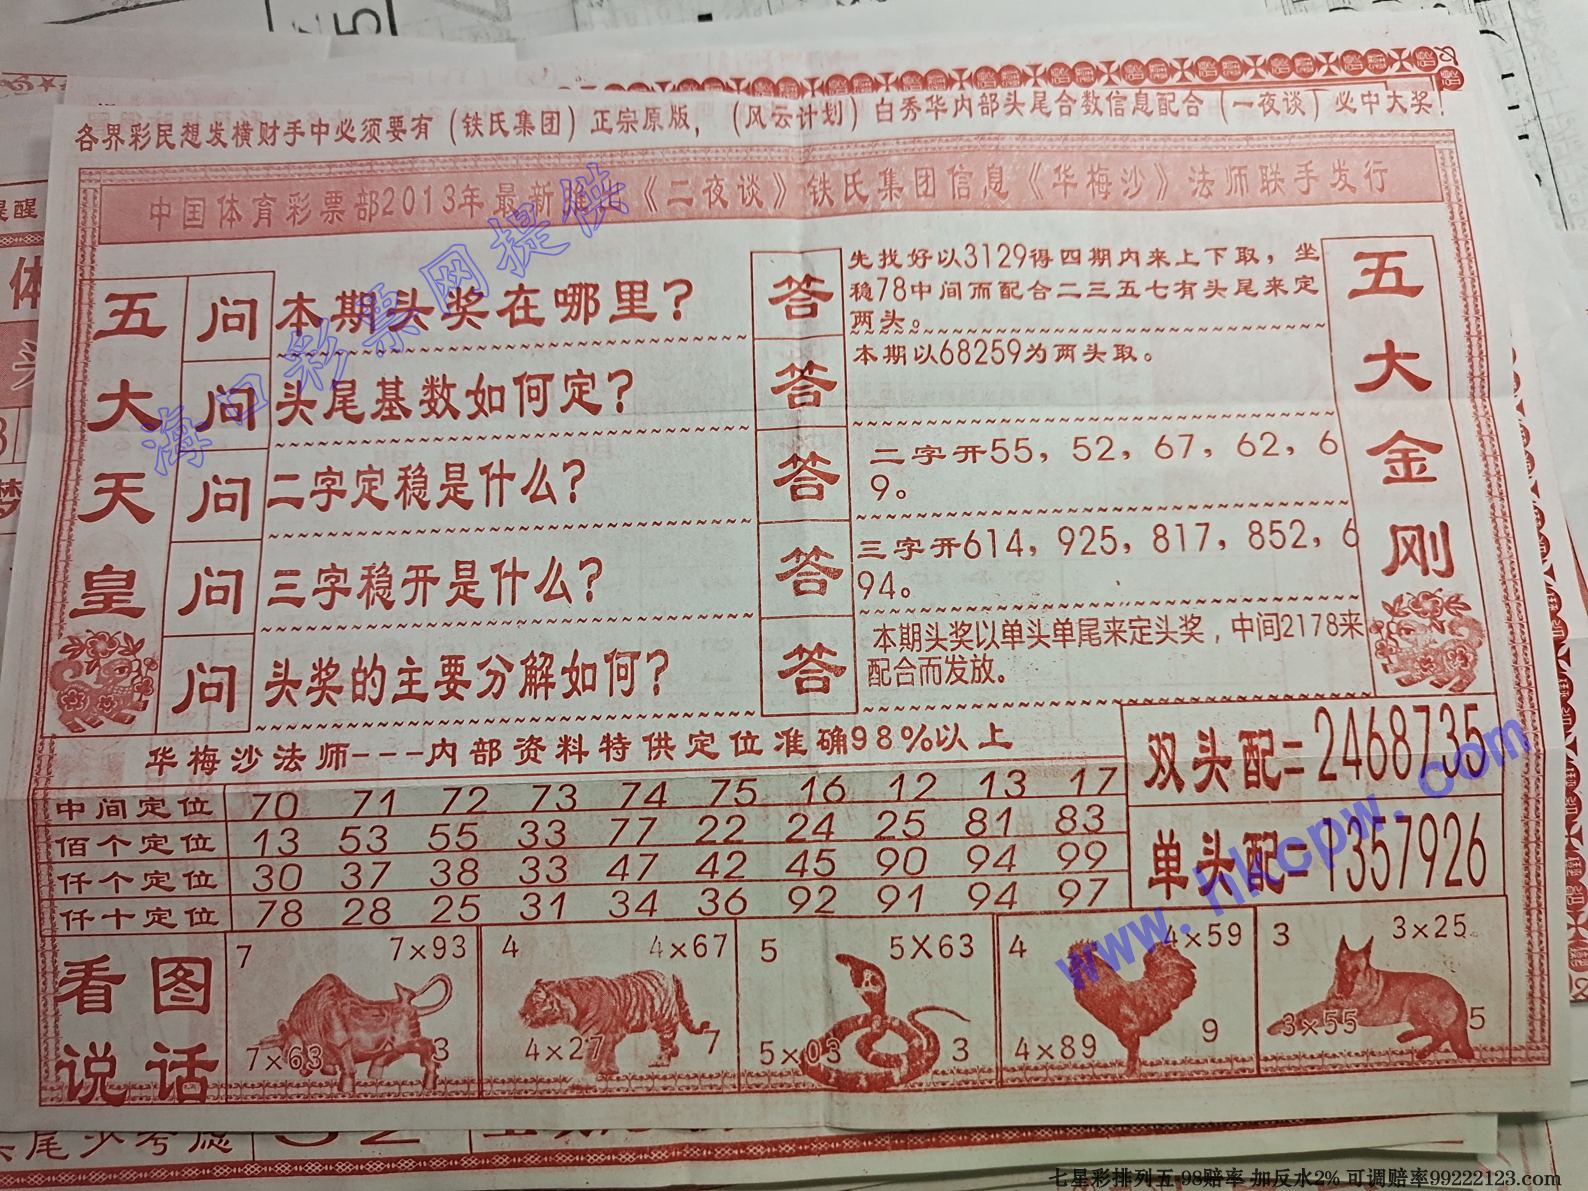 各界彩民想发横财手中必须要有（铁氏集团）正宗原版，（风云计划）白秀华内部头尾合数信息配合（一夜谈）必中大奖！
中国体育彩票部2013年最新推出《二夜谈》铁氏集团信息《华梅沙》法师联手发行
五大天皇
问 本期头奖在哪里？
答 先找好以3129得四期内来上下取，坐
稳78中间而配合二三五七有头尾来定
两头。
问 头尾基数如何定？
答 本期以68259为两头取。
问 二字定稳是什么？
答 二字开55，52，67，62，6
9。
问 三字稳开是什么？
答 三字开614，925，817，852，6
94。
问 头奖的主要分解如何？
答 本期头奖以单头单尾来定头奖，中间2178来
配合而发放。
五大金刚
华梅沙法师---内部资料特供定位准确98%以上
中间定位 70 71 72 73 74 75 16 12 13 17
佰个定位 13 53 55 33 77 22 24 25 81 83
仟个定位 30 37 38 33 47 42 45 90 94 99
仟十定位 78 28 25 31 34 36 92 91 94 97
双头配=2468735
单头配=1357926
看图
说话
7 7×93
7×63 3
4 4×67
4×27 7
5 5X63
5×03 3
4 4×59
4×89 9
3 3×25
3×55 5
海口彩票网提供
www.hkcpw.com
七星彩排列五 98赔率 加反水2% 可调赔率99222123.com